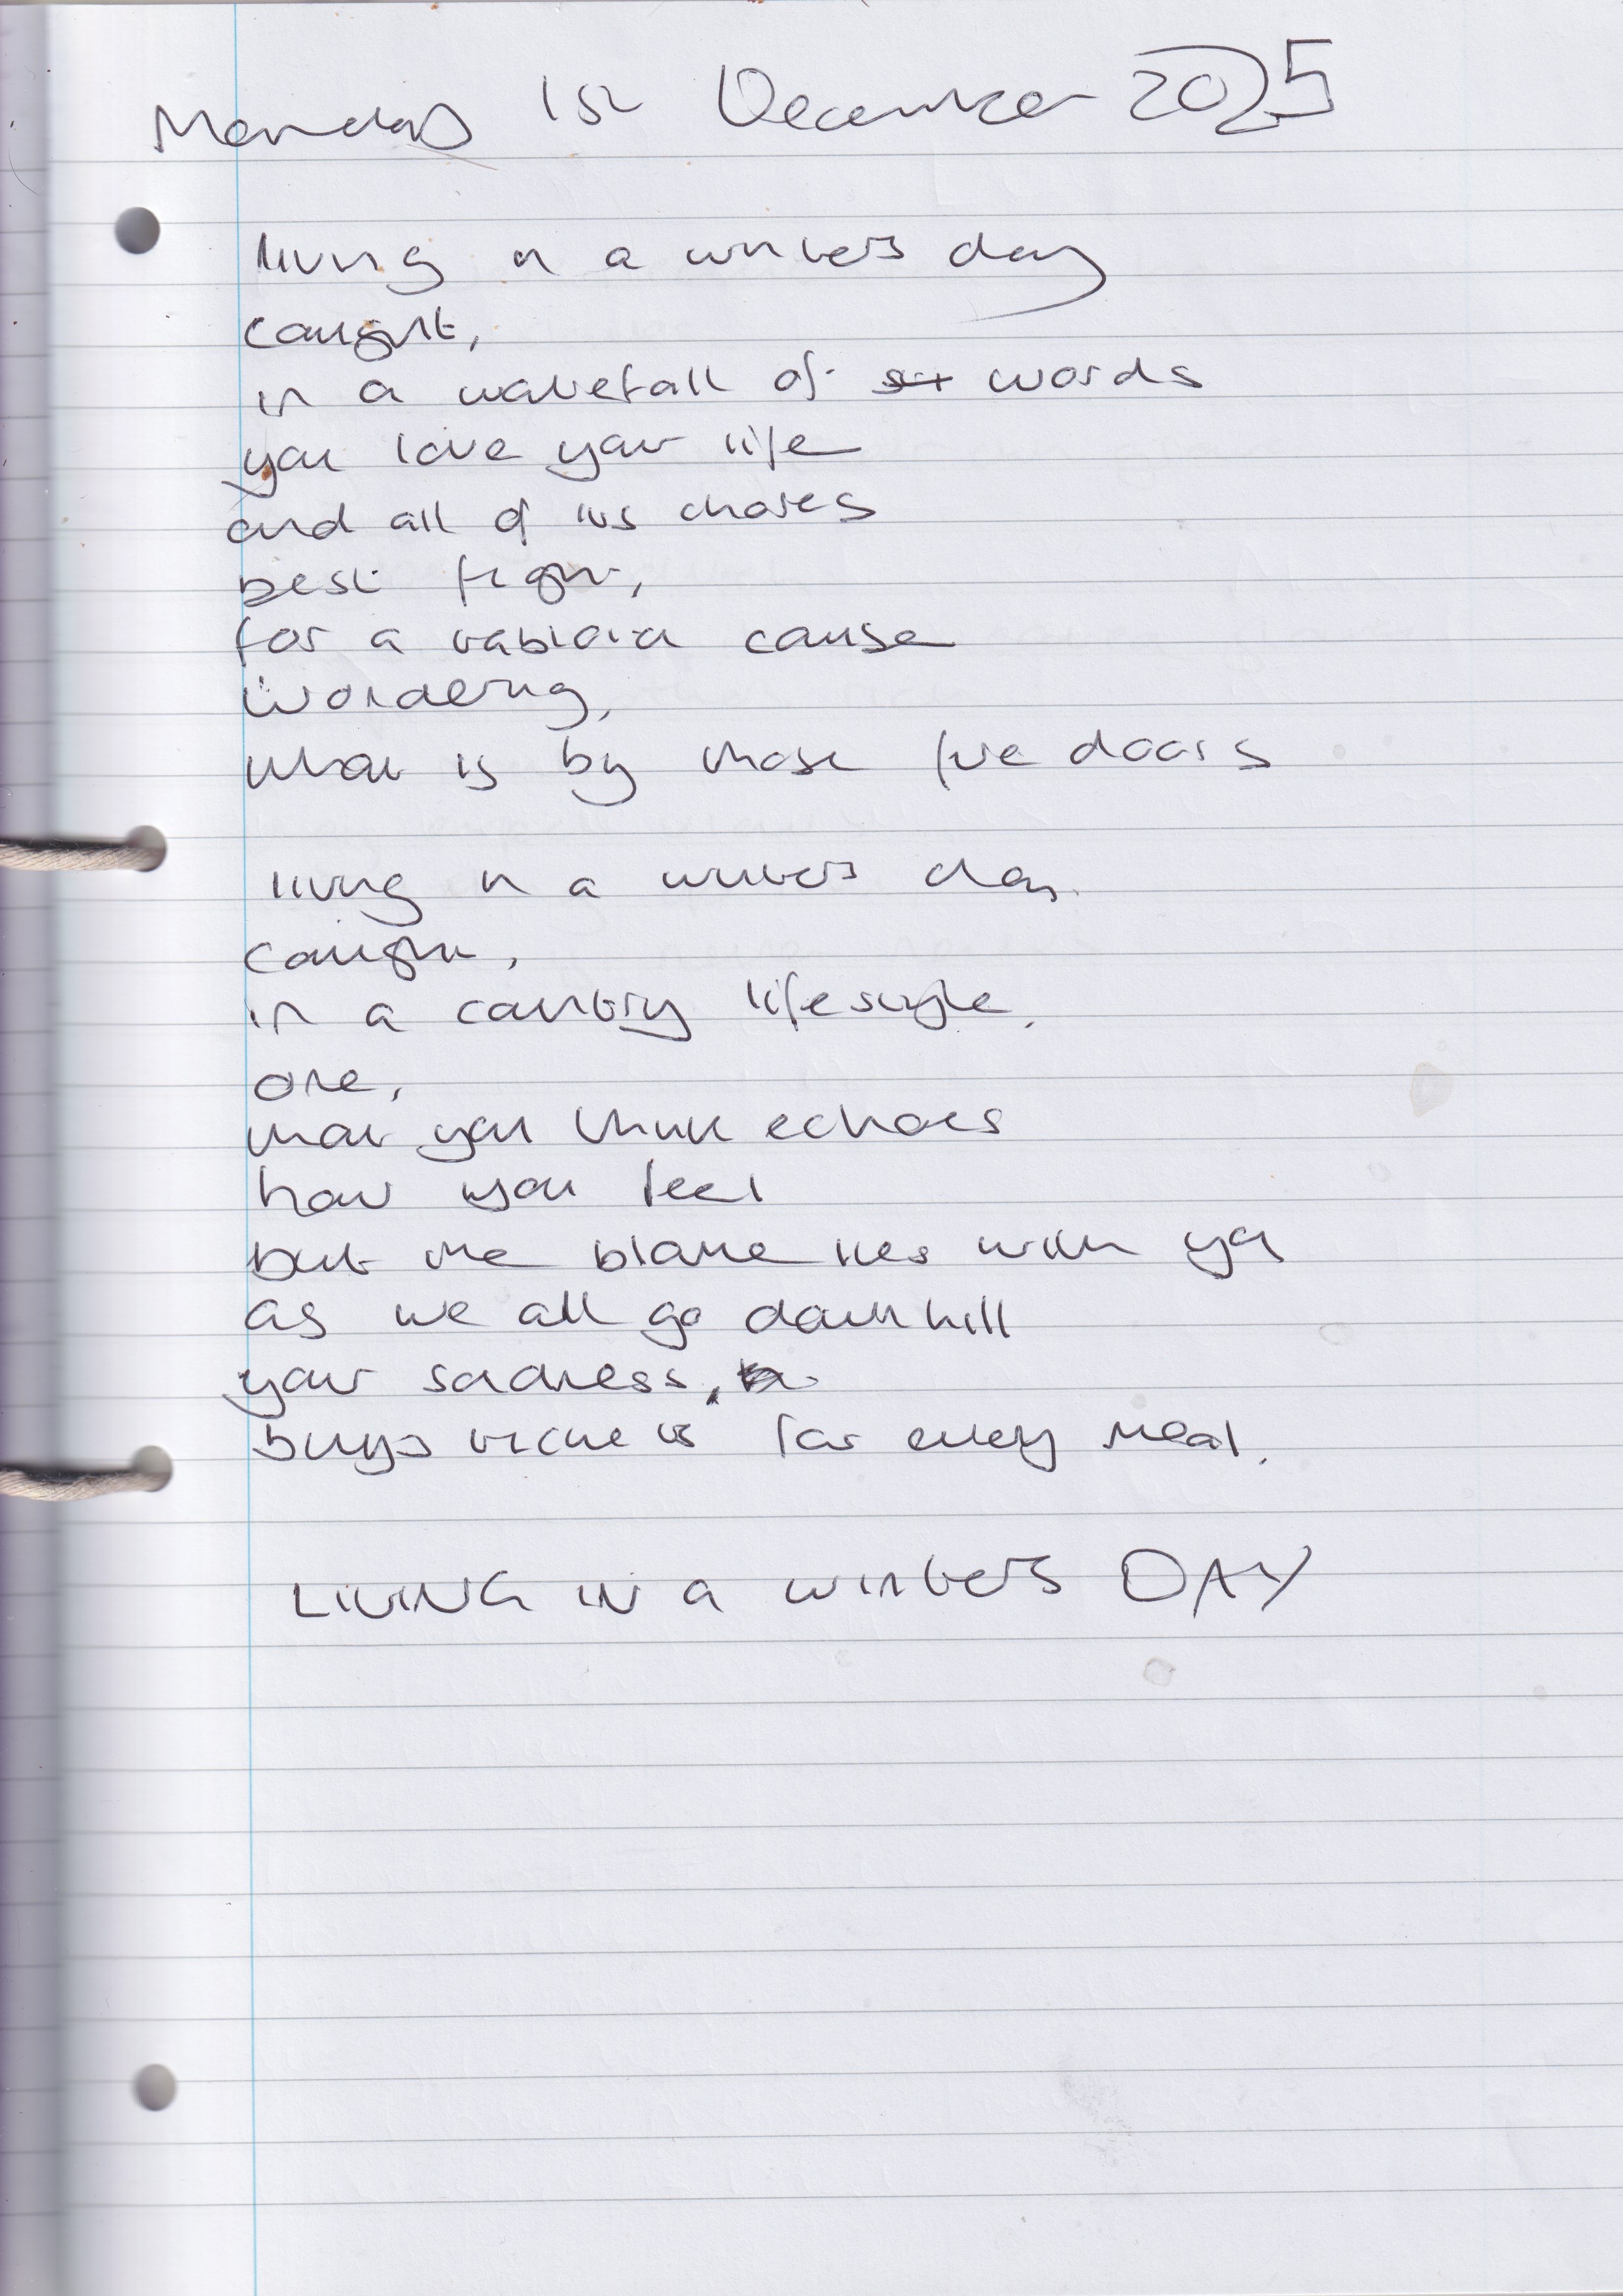 Monday 1st December 2025
living in a winters day
caught,
in a waterfall of words
you love your life
and all of its chores
best fight,
for a cause
wondering,
what is by those five doors
living in a winters day.
caught,
in a country lifestyle.
one,
what you think echoes
how you feel
but the blame lies with ya
as we all go downhill
your sadness,
buys tickets for every meal.
LIVING IN a winters DAY